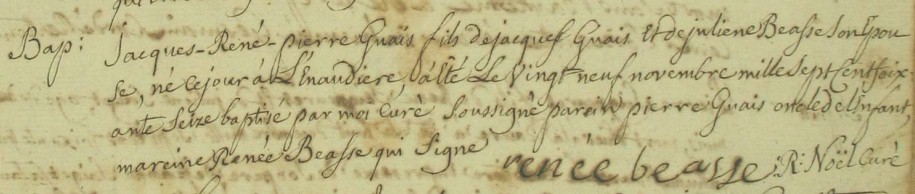 Bap: Jacques-René-pierre Guais fils dejacques Guais Et dejuliene Beasse Son Epou
se, né cejour á L'Enaudiere, á êté Le Vingt neuf novembre mille Sept Cent soix-
ante Seize baptisé par moi Curé Soussigné parein pierre Guais oncle de L'Enfant,
mareine Renée Beasse qui Signe
renée beasse :R: Noël Curé